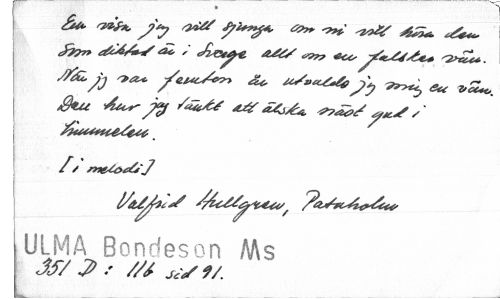 En visa jag vill sjunga om ni vill höra den
Som diktad är i Sverge allt om en falsker vän.
När jag var femton år utvalde jag mig en vän.
Den har jag tänkt att älska näst gud i
himmelen.
[1 melodi]
Valfrid Hullgren, Pataholm
ULMA Bondeson Ms
351 D: 116 sid 91.